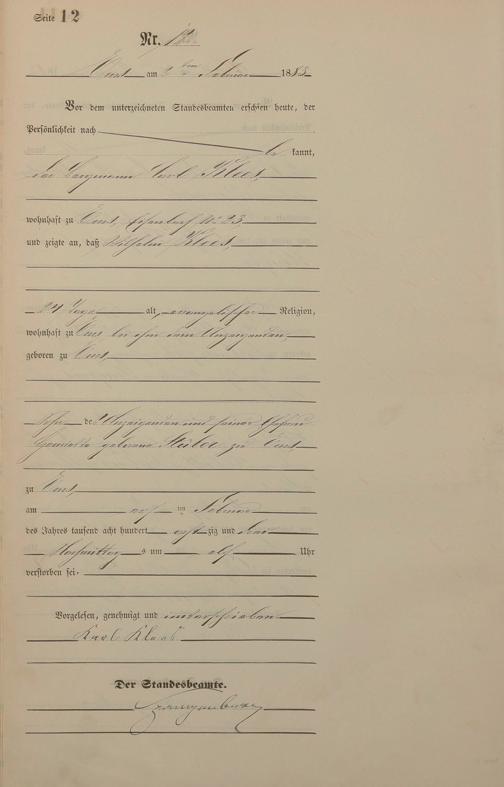 Seite 12
Nr. 12.
Ems am 2ten Februar 188
Vor dem unterzeichneten Standesbeamten erschien heute, der
Persönlichkeit nach
be kannt,
der Bergmann Carl Kloos,
wohnhaft zu Ems, No 23,
und zeigte an, daß Wilhelm Kloos,
24 Tage alt, evangelischer Religion,
wohnhaft zu Ems bei ihm dem Anzeigenden,
geboren zu Ems,
Sohn des Anzeigenden und seiner Ehefrau
Henriette geborene zu Ems
zu Ems,
am im Februar
des Jahres tausend acht hundert acht zig und
Vormittags um elf Uhr
verstorben sei.
Vorgelesen, genehmigt und unterschrieben
Karl Kloos
Der Standesbeamte.